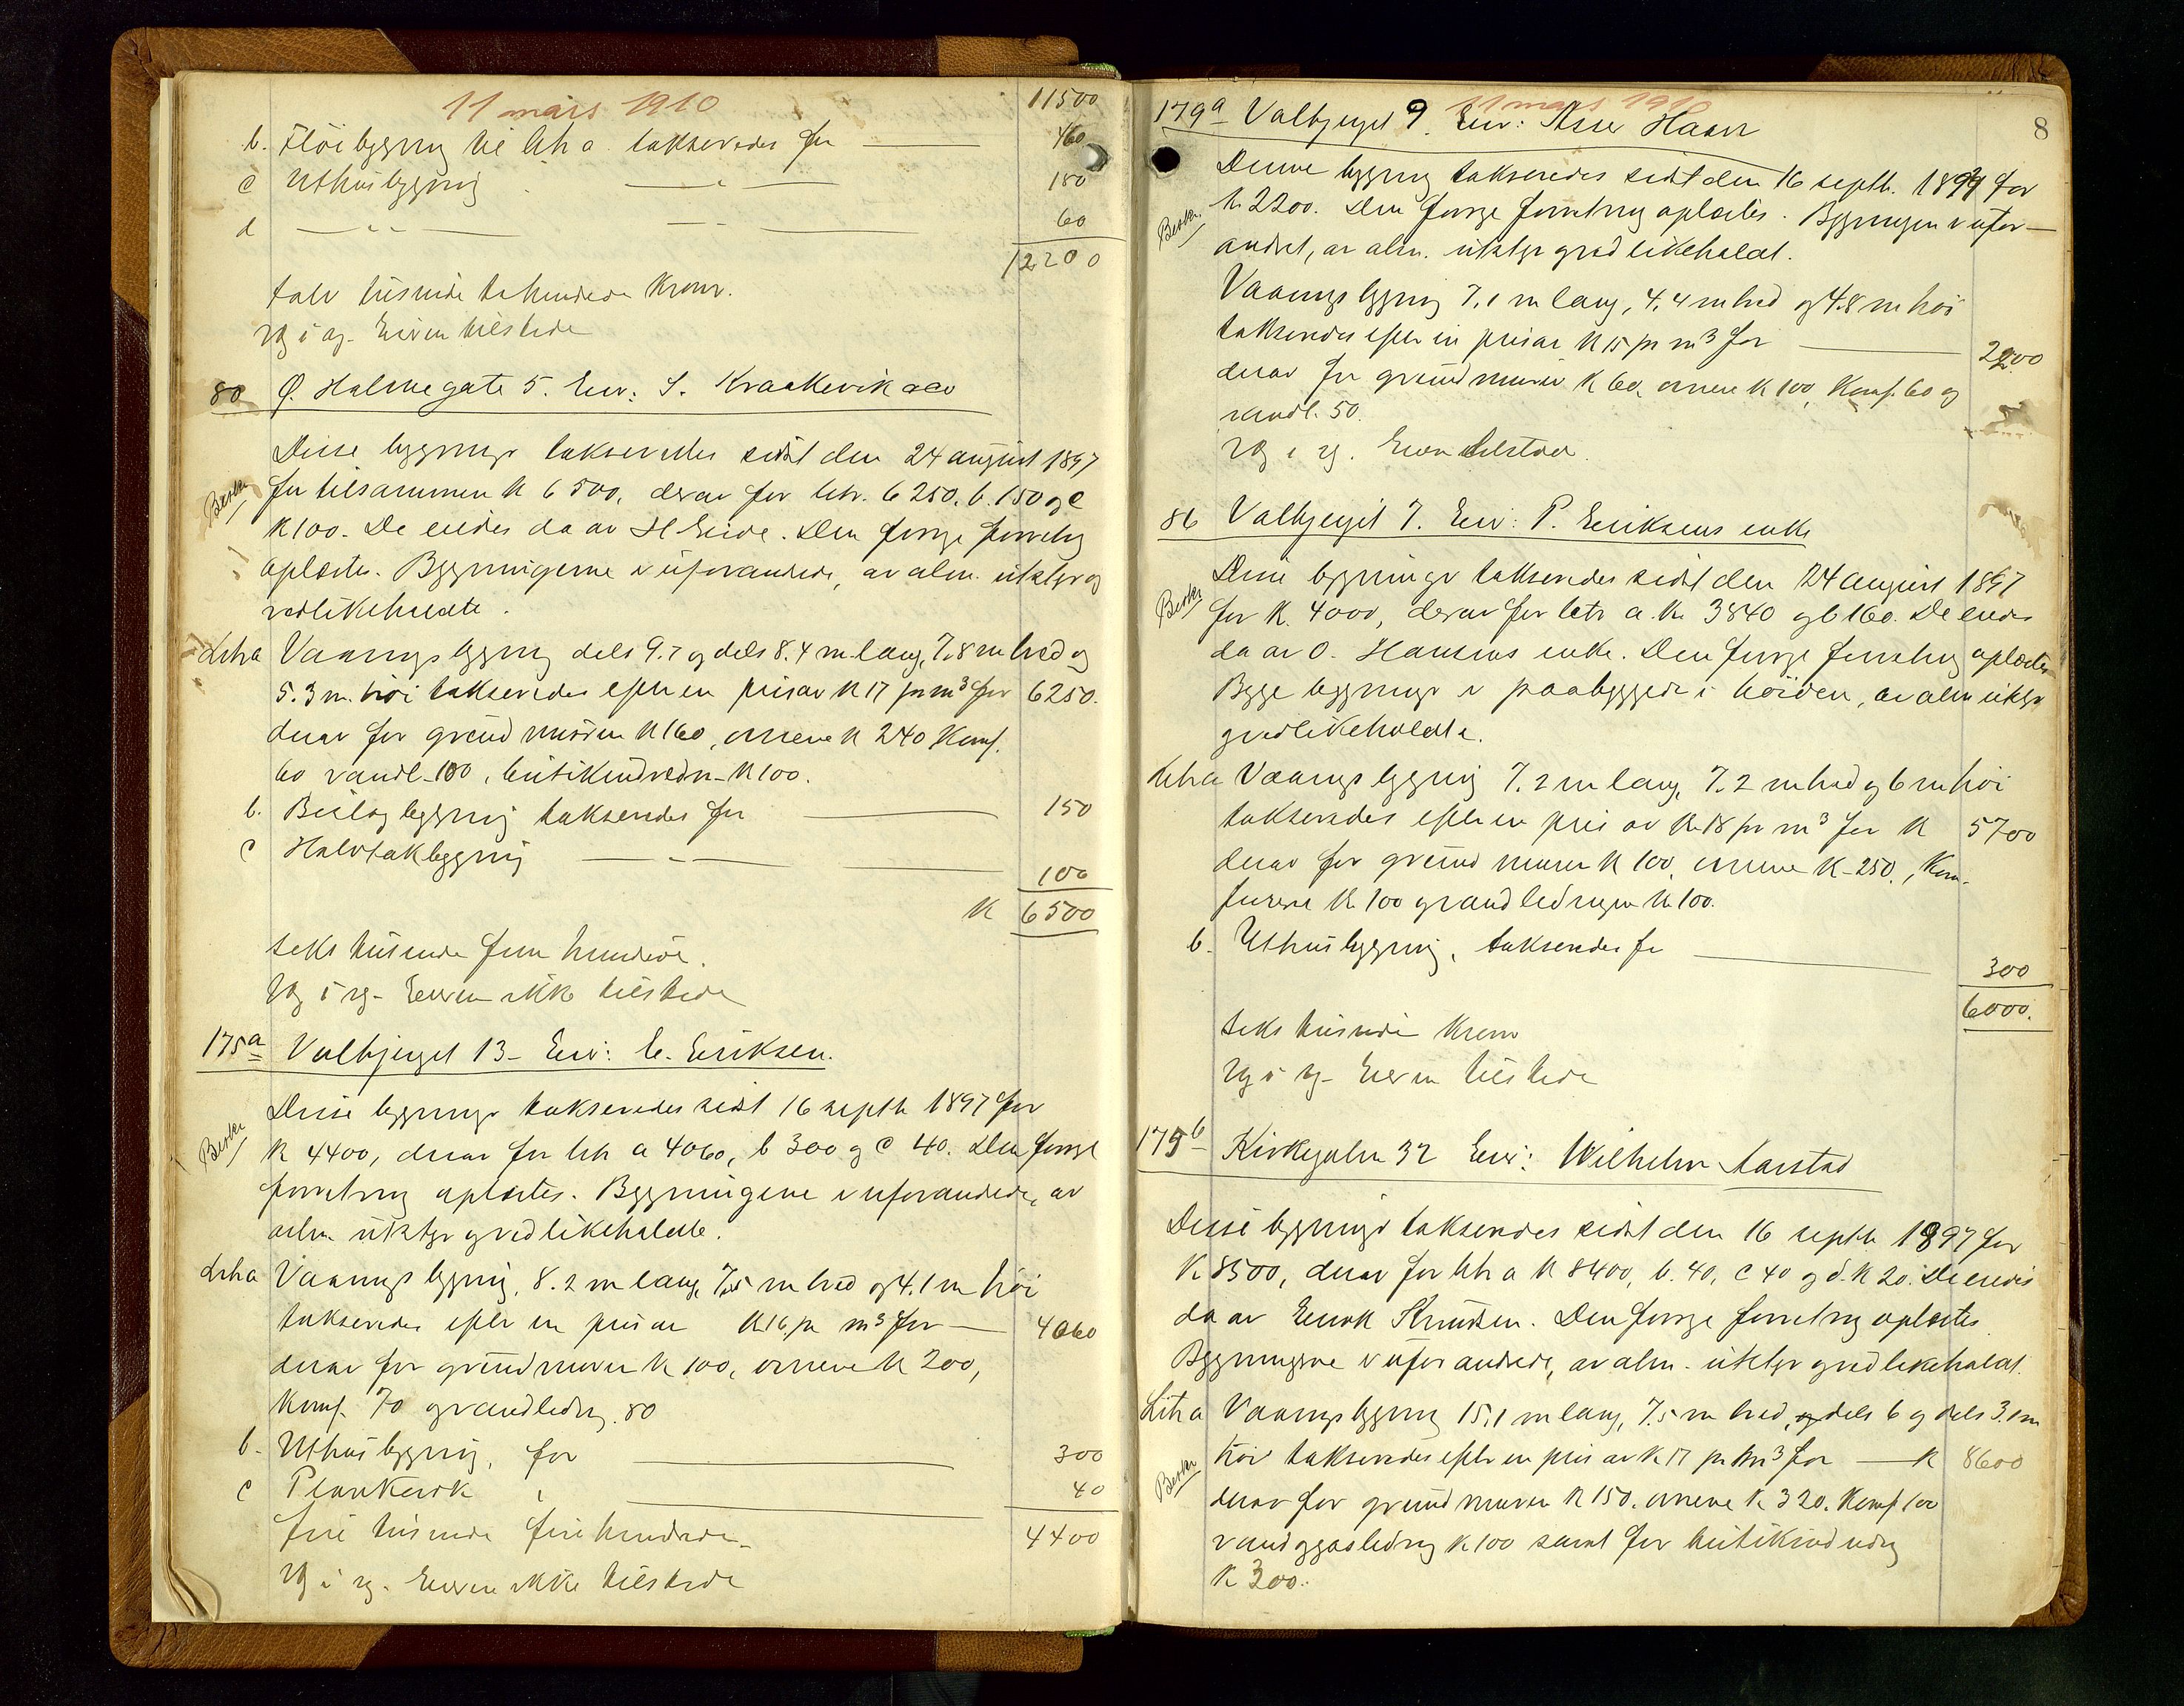 11 mars 1910
11500
b. Fløibygning til litr a. takseredes for — 460
c Uthusbygning — „ — 180
d — „ — — „ — 60
12200
tolv tusinde tohundrede kroner.
Eieren tilstede
80 Ø. Holmegate 5. Eier: S. Kraakevik & co
Disse bygninger takseredes sidst den 24 august 1897
Beskr. for tilsammen K 6500, derav for litr. 6250, b. 150 og c
K 100. De eiedes da av H Eide. Den forrige forretng
oplæstes. Bygningerne er uforandrede, av alm. utstyr og
vedlikeholdte.
Litr a Vaaningsbygning dels 9.7 og dels 8.4 m. lang, 7.8 m bred og
5.3 m. høi takseredes efter en pris av K 17 pr m³ for 6250.
derav for grundmuren K 160, ovnene K 240 Komf.
60 vandl. 100, butikindredn. K 100.
b. Beslag bygning takseredes for — 150
c Halvtakbygning — „ — 100
K 6500
seks tusinde fem hundrede.
Eieren ikke tilstede
175a Valbjerget 13 - Eier: C. Eriksen.
Disse bygninger takseredes sidst 16 septbr 1897 for
Beskr K 4400, derav for litr a 4060, b 300 og c 40. Den forrige
forretning oplæstes. Bygningene er uforandrede, av
alm. utstyr og vedlikeholdte.
Litr a Vaaningsbygning, 8.2 m lang, 7.5 m bred og 4.1 m høi
takseredes efter en pris av K 16 pr m³ for — 4060
derav for grundmuren K 100, ovnene K 200,
Komf. 70 og vandledng. 80
b. Uthusbygning, for — 300
c Plankeverk „ — 40
fire tusinde firehundrede — 4400
Eieren ikke tilstede
8
11 mars 1910
179a Valbjerget 9. Eier: Haaer
Denne bygning takseredes sidst den 16 septbr. 1897 for
Beskr. K. 2200. Den forrige forretning oplæstes. Bygningen er ufor-
andret, av alm. utstyr og vedlikeholdt.
Vaaningsbygning 7.1 m lang, 4.4 m bred og 4.8 m høi
takseredes efter en pris av K 15 pr m³ for — 2200
derav for grundmuren K 60, ovnene K 100, Komf. 60 og
vandl. 50.
Eieren tilstede.
86 Valbjerget 7. Eier: P. Eriksens enke
Disse bygninger takseredes sidst den 24 august 1897
Beskr for K. 4000, derav for litr a. K. 3840 og b 160. De eiedes
da av O. Hansens enke. Den forrige forretning oplæstes
Begge bygninger er paabyggede i høiden, av alm utstyr
og vedlikeholdte.
Litr a Vaaningsbygning 7.2 m lang, 7.2 m bred og 6 m høi
takseredes efter en pris av K. 18 pr m³ for K 5700
derav for grundmuren K 100, ovnene K. 250, Kom-
furene K. 100 og vandledningen K 100.
b. Uthusbygning, takseredes for — 300
6000.
seks tusinde kroner
Eieren tilstede
175b Kirkegaten 32 Eier: Wilhelm Aarstad
Disse bygninger takseredes sidst den 16 septbr 1897 for
K 8500, derav for litr a K 8400, b. 40, c 40 og d. K 20. De eiedes
da av Knudsen. Den forrige forretning oplæstes.
Bygningerne er uforandrede, av alm. utstyr og vedlikeholdt.
Litr a Vaaningsbygning 15.1 m lang, 7.5 m bred, og dels 6 og dels 3.1 m
Beskr høi takseredes efter en pris av K 17 pr m³ for — K 8600
derav for grundmuren K 150. ovnene K 320. Komf 100
vand og gasledng K 100 samt for butikindredng
K 300.